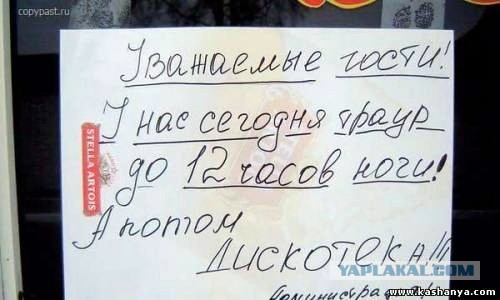 copypast.ru
Уважаемые гости!
У нас сегодня траур
до 12 часов ночи!
А потом
ДИСКОТЕКА!!!
STELLA ARTOIS
YAPLAKAL.COM
www.kashanya.com